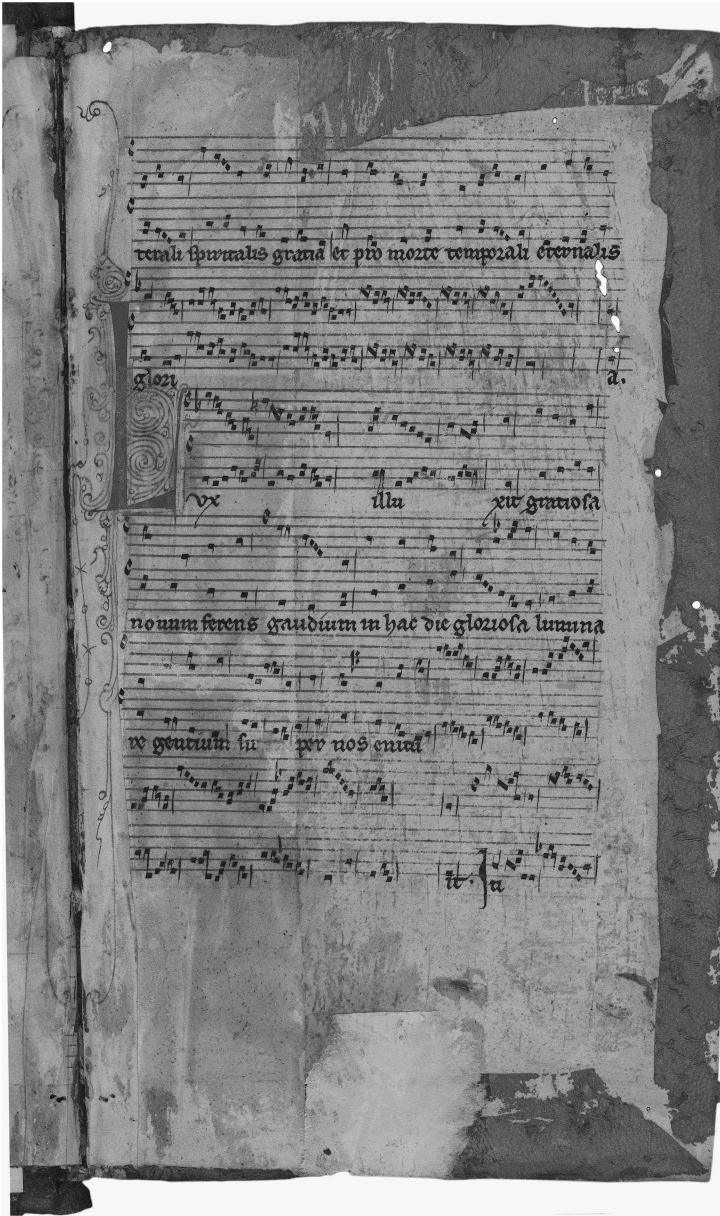 terali spiritalis gratia et pro morte temporali eternalis
glori a.
ux illu xit gratiosa
novum ferens gaudium in hac die gloriosa lumina
re gentium su per nos enita
it. ti